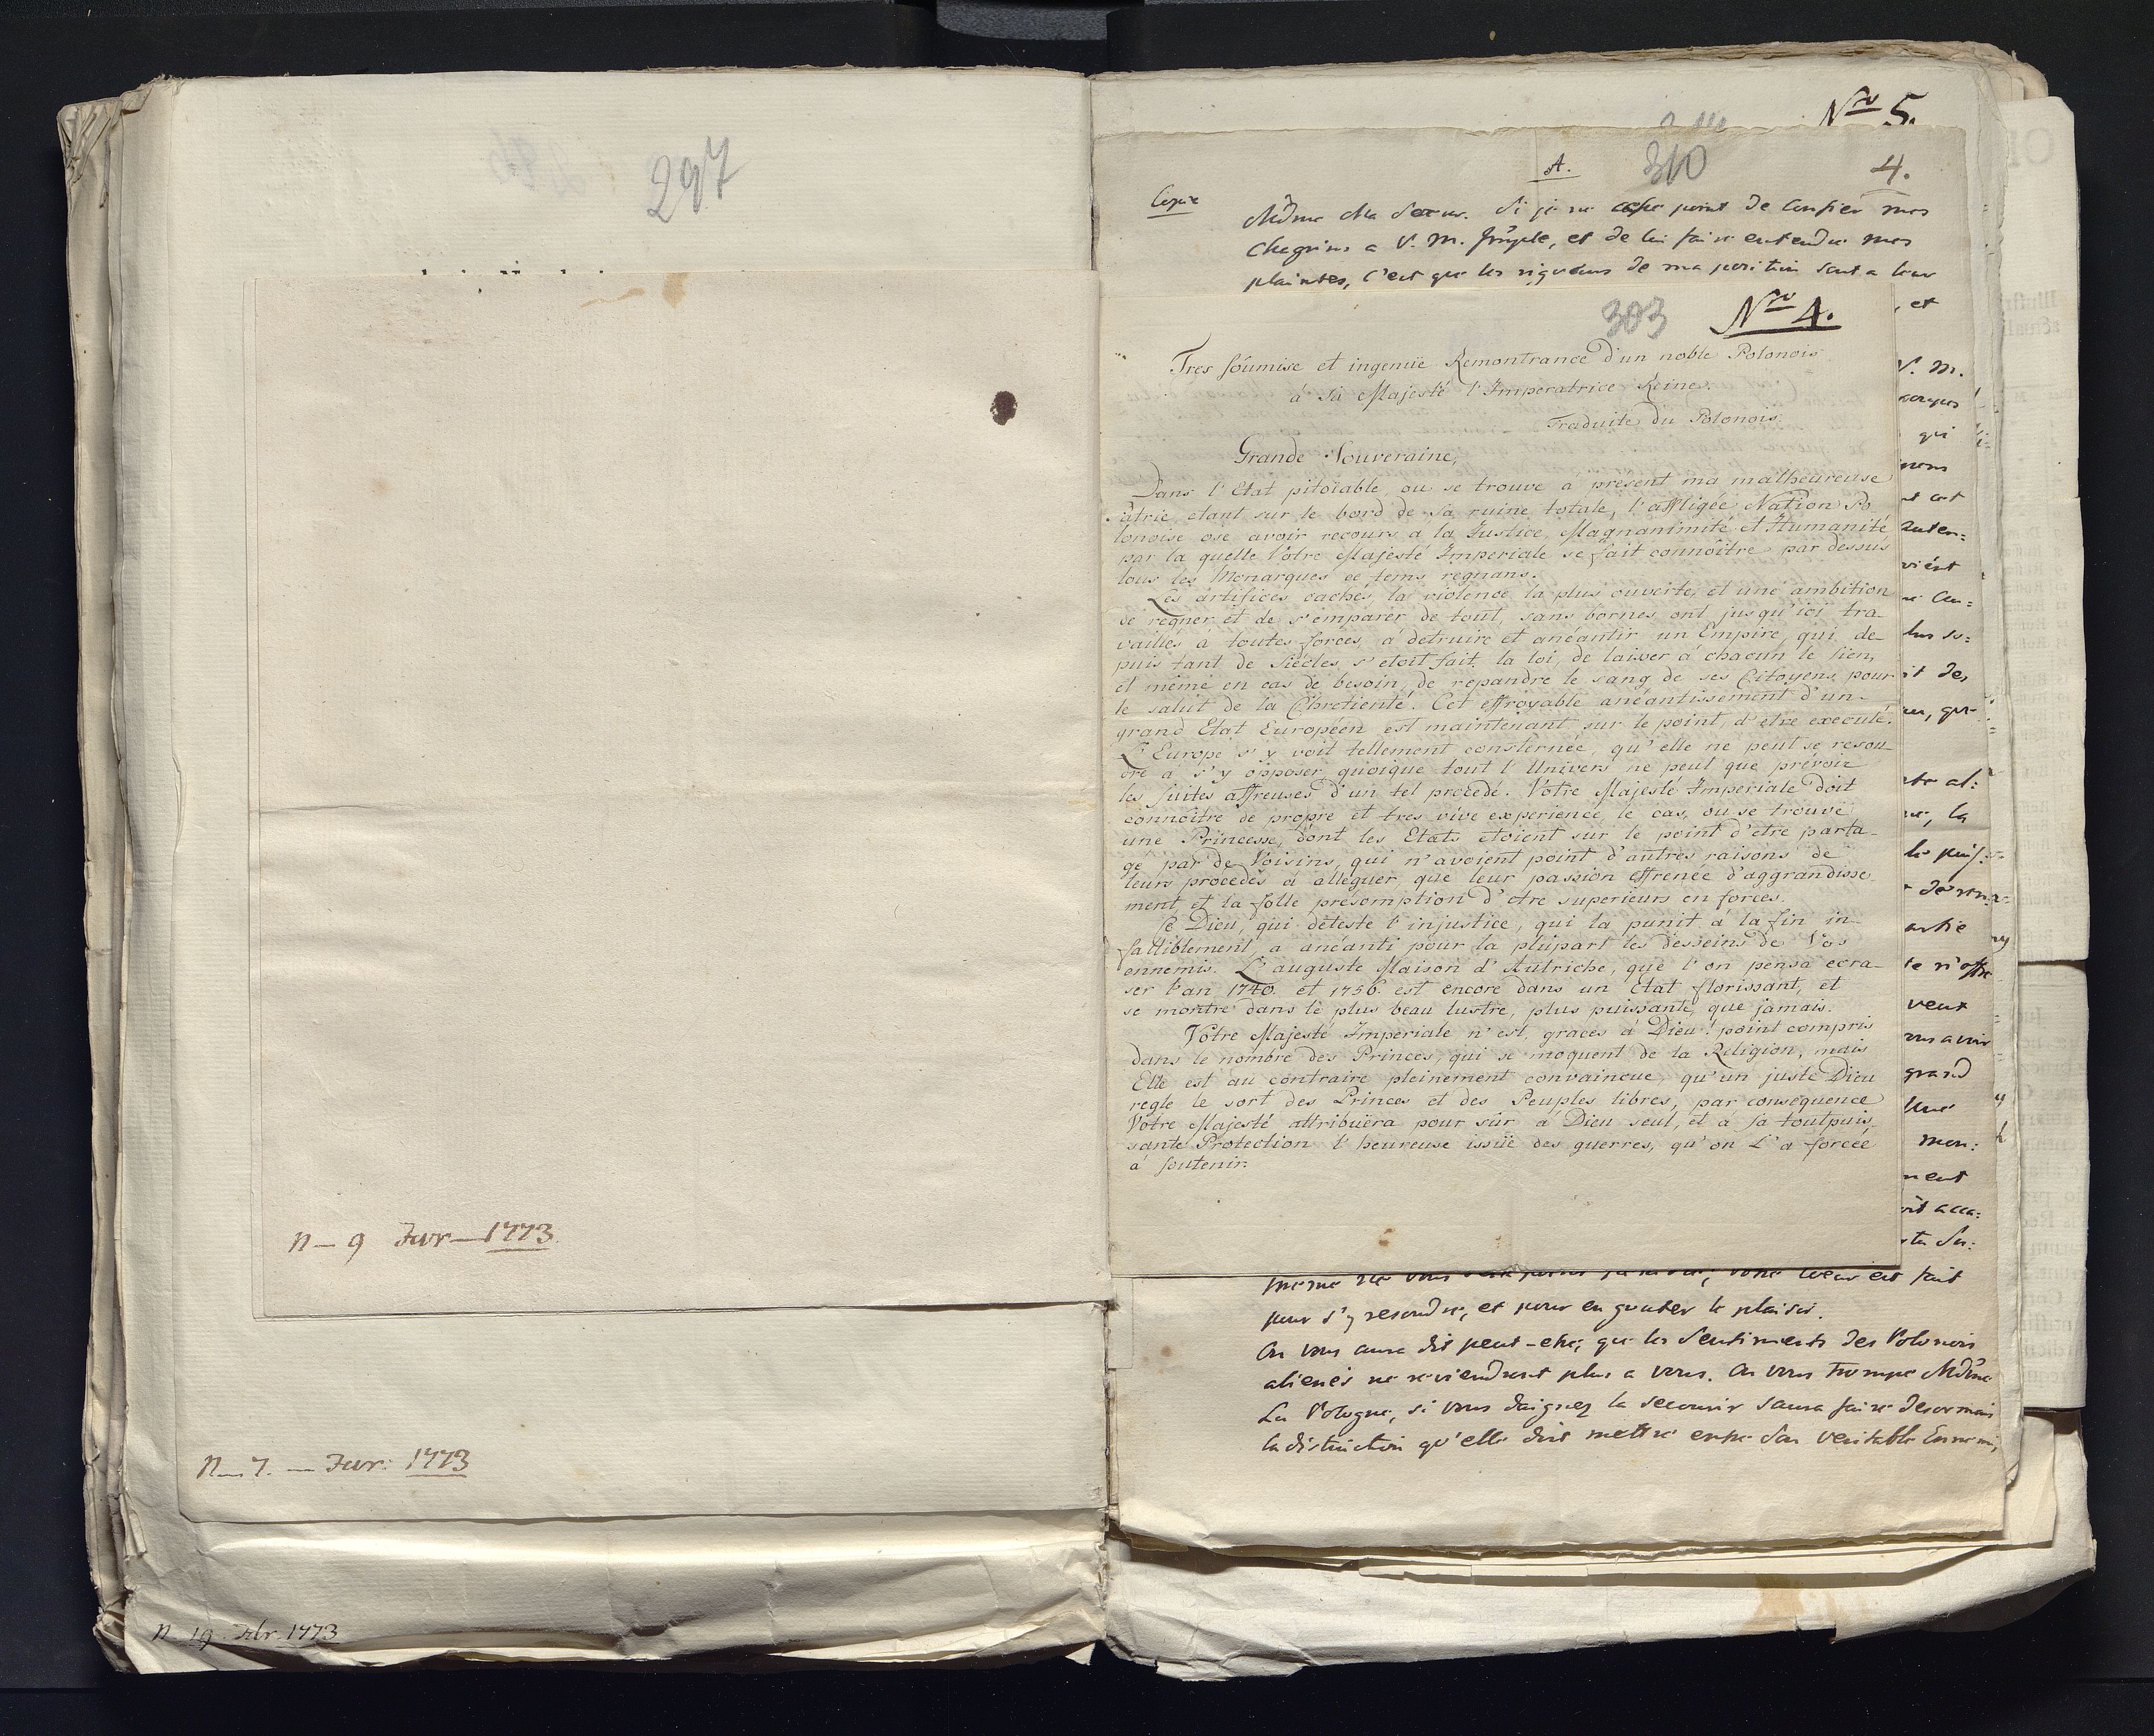 297
n_ 9 Fevr_ 1773.
n_ 7. _ Fevr: 1773
n 19. Febr. 1773
Nro 5.
A.
310
4.
Copie
Mdme Ma Soeur. Si je ne cesse point de confier mes
chagrins a V. M. Imple, et de lui faire entendre mes
plaintes, c'est que les rigueurs de ma position sont a leur
303
Nro 4.
Tres soumise et ingenüe Remontrance d'un noble Polonois
à Sa Majesté l'Imperatrice Reine.
Traduite du Polonois.
Grande Souveraine,
Dans l'Etat pitoïable, ou se trouve à present ma malheureuse
Patrie, etant sur le bord de sa ruine totale, l'affligée Nation Po
lonoise ose avoir recours à la Justice, Magnanimité et Humanité
par la quelle Votre Majesté Imperiale se fait connoître par dessus
tous les Monarques ce tems regnans.
Les artifices cachés, la violence la plus ouverte, et une ambition
de regner et de s'emparer de tout, sans bornes, ont jusqu'ici tra-
vaillés à toutes forces, à detruire et anéantir un Empire, qui de-
puis tant de Siécles, s'etoit fait la loi, de laisser à chacun le sien,
et même en cas de besoin, de repandre le sang de ses Citoyens, pour
le salut de la Chretienté. Cet effroyable anéantissement d'un-
grand Etat Européen est maintenant sur le point, d'etre executé.
L'Europe s'y voit tellement consternée, qu'elle ne peut se resou-
dre a s'y opposer, quoique tout l'Univers ne peut que prévoir
les suites affreuses d'un tel procedé. Votre Majesté Imperiale doit
connoître de propre et tres vive experience, le cas, ou se trouve
une Princesse, dont les Etats etoient sur le point d'etre parta-
gé par de Voisins, qui n'avoient point d'autres raisons de
leurs procedés à alleguer, que leur passion effrenée d'aggrandisse-
ment, et la folle présomption d'etre superieurs en forces.
Ce Dieu, qui déteste l'injustice, qui la punit à la fin in-
falliblement a anéanti pour la plûpart les desseins de Vos
ennemis. L'auguste Maison d'Autriche, que l'on pensa ecra-
ser l'an 1740. et 1756. est encore dans un Etat florissant, et
se montre dans le plus beau lustre, plus puissante, que jamais.
Votre Majesté Imperiale n'est, graces à Dieu! point compris
dans le nombre des Princes, qui se moquent de la Religion, mais
Elle est au contraire pleinement convaincue, qu'un juste Dieu
regle le sort des Princes et des Peuples libres, par consequence
Votre Majesté attribuëra pour sûr à Dieu seul, et à sa toutpuis-
sante Protection l'heureuse issüe des guerres, qu'on L'a forcée
à soutenir.
et
V. M.
qui
la
veut
grand
pour s'y resoudre, et pour en gouter le plaisir.
On vous aura dit peut-etre, que les Sentiments des Polonois
alienés ne reviendront plus a vous. On vous trompe Mdme
La Pologne, si vous daignez la secourir saura faire desormais
la distinction qu'elle doit mettre entre son veritable Ennemi,